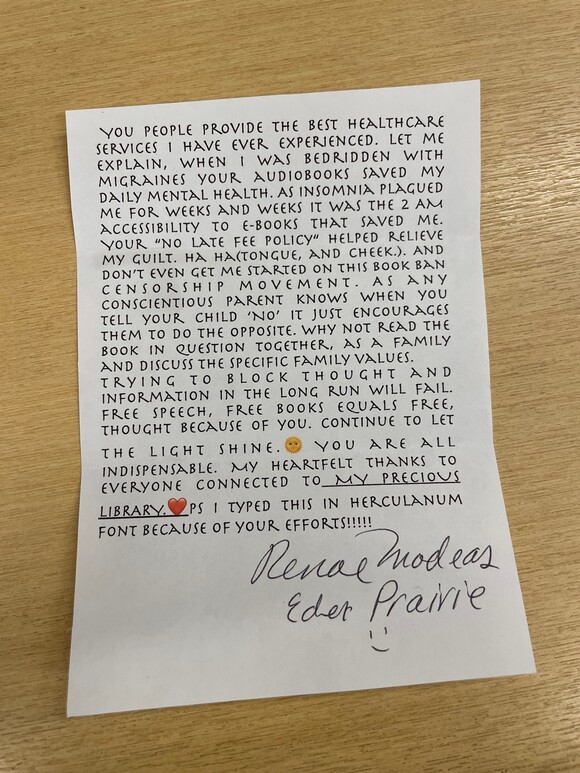 YOU PEOPLE PROVIDE THE BEST HEALTHCARE
SERVICES I HAVE EVER EXPERIENCED. LET ME
EXPLAIN, WHEN I WAS BEDRIDDEN WITH
MIGRAINES YOUR AUDIOBOOKS SAVED MY
DAILY MENTAL HEALTH. AS INSOMNIA PLAGUED
ME FOR WEEKS AND WEEKS IT WAS THE 2 AM
ACCESSIBILITY TO E-BOOKS THAT SAVED ME.
YOUR “NO LATE FEE POLICY” HELPED RELIEVE
MY GUILT. HA HA(TONGUE, AND CHEEK.). AND
DON’T EVEN GET ME STARTED ON THIS BOOK BAN
CENSORSHIP MOVEMENT. AS ANY
CONSCIENTIOUS PARENT KNOWS WHEN YOU
TELL YOUR CHILD ‘NO’ IT JUST ENCOURAGES
THEM TO DO THE OPPOSITE. WHY NOT READ THE
BOOK IN QUESTION TOGETHER, AS A FAMILY
AND DISCUSS THE SPECIFIC FAMILY VALUES.
TRYING TO BLOCK THOUGHT AND
INFORMATION IN THE LONG RUN WILL FAIL.
FREE SPEECH, FREE BOOKS EQUALS FREE,
THOUGHT BECAUSE OF YOU. CONTINUE TO LET
THE LIGHT SHINE.🌞 YOU ARE ALL
INDISPENSABLE. MY HEARTFELT THANKS TO
EVERYONE CONNECTED TO MY PRECIOUS
LIBRARY.❤️PS I TYPED THIS IN HERCULANUM
FONT BECAUSE OF YOUR EFFORTS!!!!!
Renae Modeas
Eden Prairie
:)